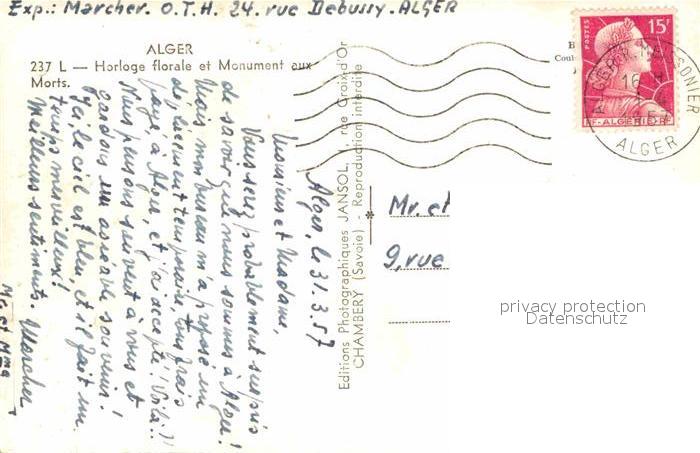 Exp.: Marcher. O.T.H. 24. rue Debussy. ALGER
ALGER
237 L — Horloge florale et Monument aux
Morts.
Alger, le 31.3.57
Monsieur et Madame,
Vous serez probablement surpris
de savoir que nous sommes à Alger!
Mais mon bureau m'a proposé un
déplacement temporaire, tous frais
payés, à Alger, et j'ai accepté! Voilà..
Nous pensons souvent à vous et
gardons un agréable souvenir!
Ici, le ciel est bleu, et il fait un
temps merveilleux!
Meilleurs sentiments. Marcher
Mr et Mme
Editions Photographiques JANSOL, rue Croix d'Or
CHAMBERY (Savoie) - Reproduction interdite
Mr. et
9, rue
POSTES
15F
RF-ALGERIE-RF
16
ALGER
privacy protection
Datenschutz